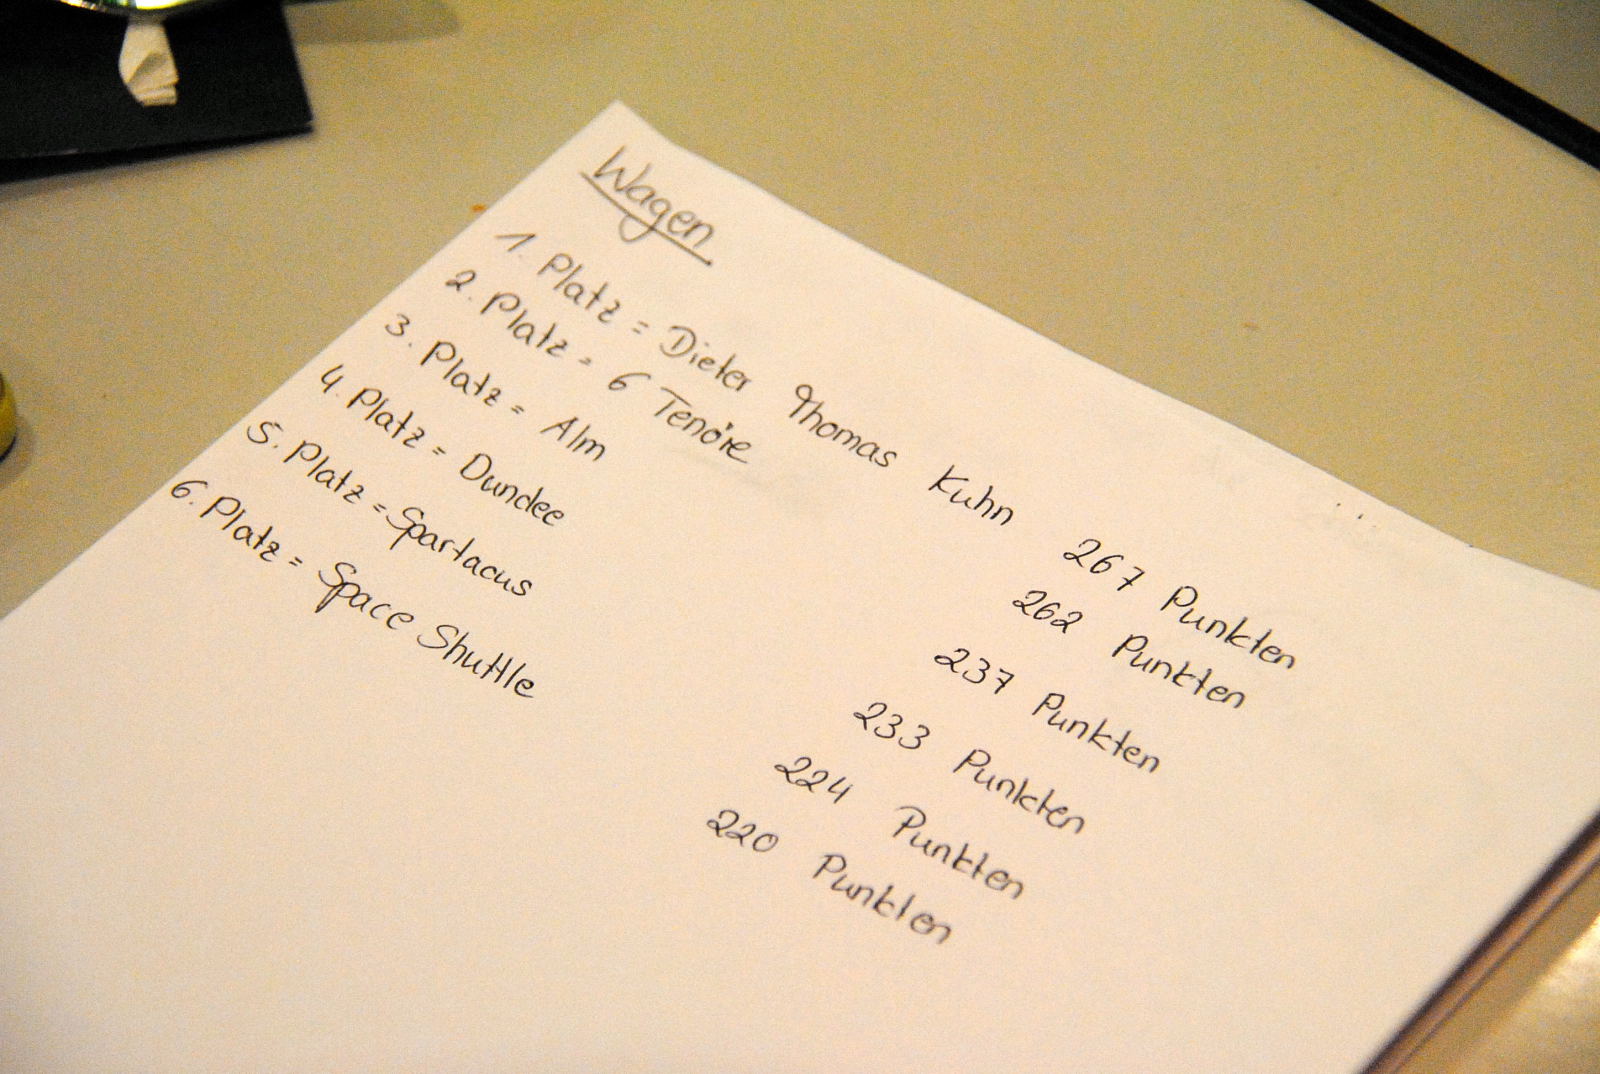 Wagen
1. Platz = Dieter Thomas Kuhn 267 Punkten
2. Platz = 6 Tenöre 262 Punkten
3. Platz = Alm 237 Punkten
4. Platz = Dundee 233 Punkten
5. Platz = Spartacus 224 Punkten
6. Platz = Space Shuttle 220 Punkten